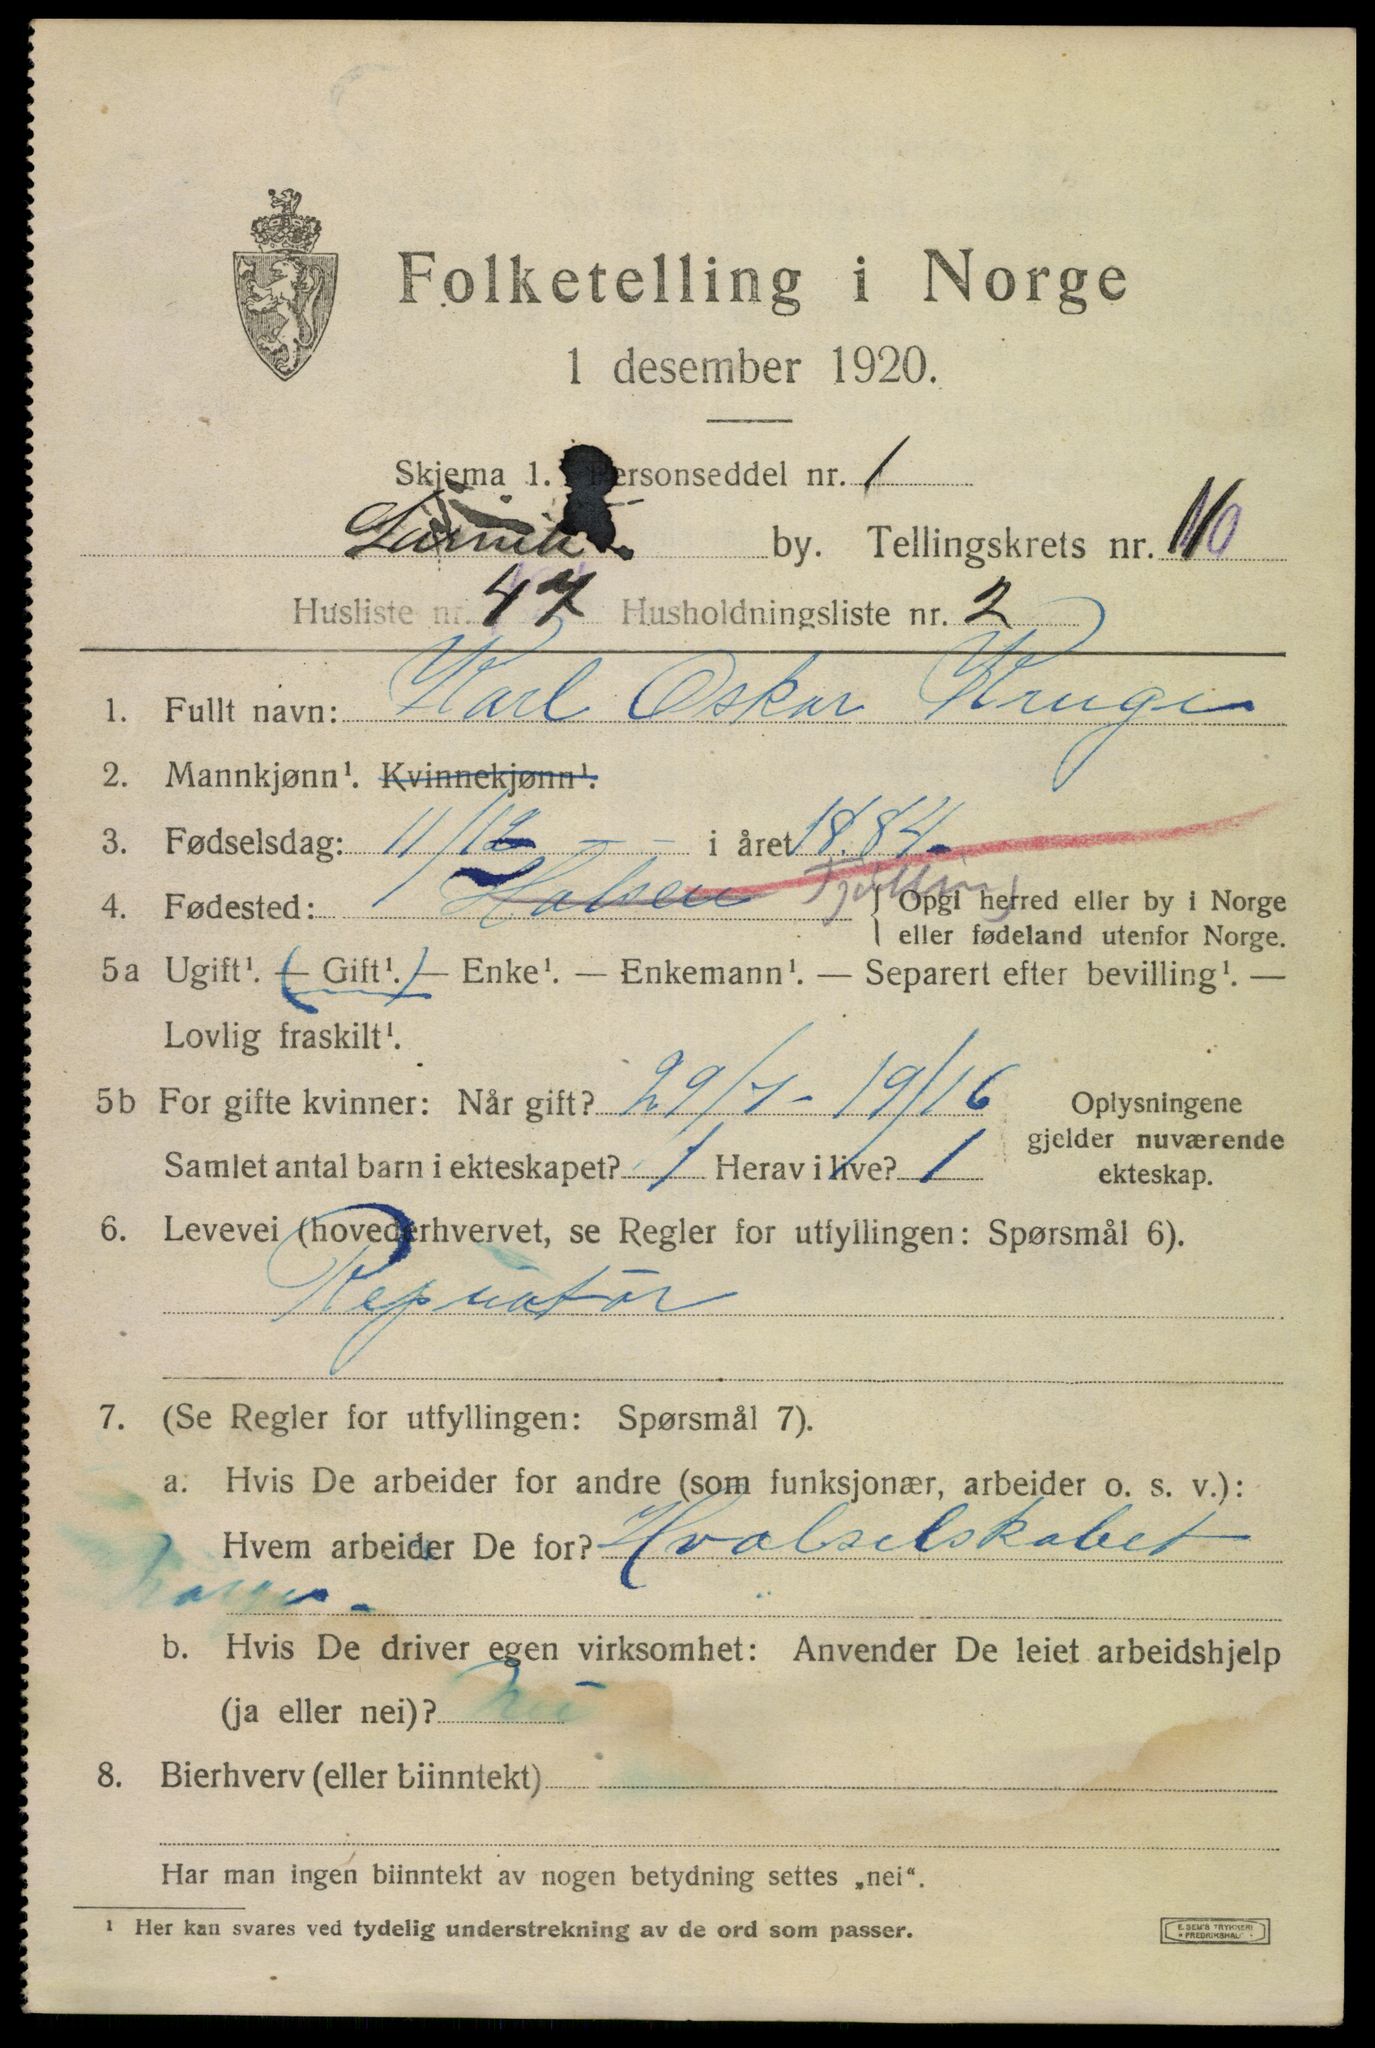 Folketelling i Norge
1 desember 1920.
Skjema 1. Personseddel nr. 1
Larvik by. Tellingskrets nr. 10
Husliste nr. 47 Husholdningsliste nr. 2
1. Fullt navn: Karl Oskar Kruge
2. Mannkjønn¹. Kvinnekjønn¹.
3. Fødselsdag: 11/12 — — i året 1884.
4. Fødested: Halsen Fjølling { Opgi herred eller by i Norge
eller fødeland utenfor Norge.
5a Ugift¹. (— Gift¹.) — Enke¹. — Enkemann¹. — Separert efter bevilling¹. —
Lovlig fraskilt¹.
5b For gifte kvinner: Når gift? 29/7 - 19/16 Oplysningene
gjelder nuværende
ekteskap.
Samlet antal barn i ekteskapet? 1 Herav i live? 1
6. Levevei (hovederhvervet, se Regler for utfyllingen: Spørsmål 6).
Repratør
7. (Se Regler for utfyllingen: Spørsmål 7).
a. Hvis De arbeider for andre (som funksjonær, arbeider o. s. v.):
Hvem arbeider De for? Hvalselskabet
Norge.
b. Hvis De driver egen virksomhet: Anvender De leiet arbeidshjelp
(ja eller nei)? Nei
8. Bierhverv (eller biinntekt)
Har man ingen biinntekt av nogen betydning settes „nei“.
¹ Her kan svares ved tydelig understrekning av de ord som passer.
E. SEM'S TRYKKERI
FREDRIKSHALD